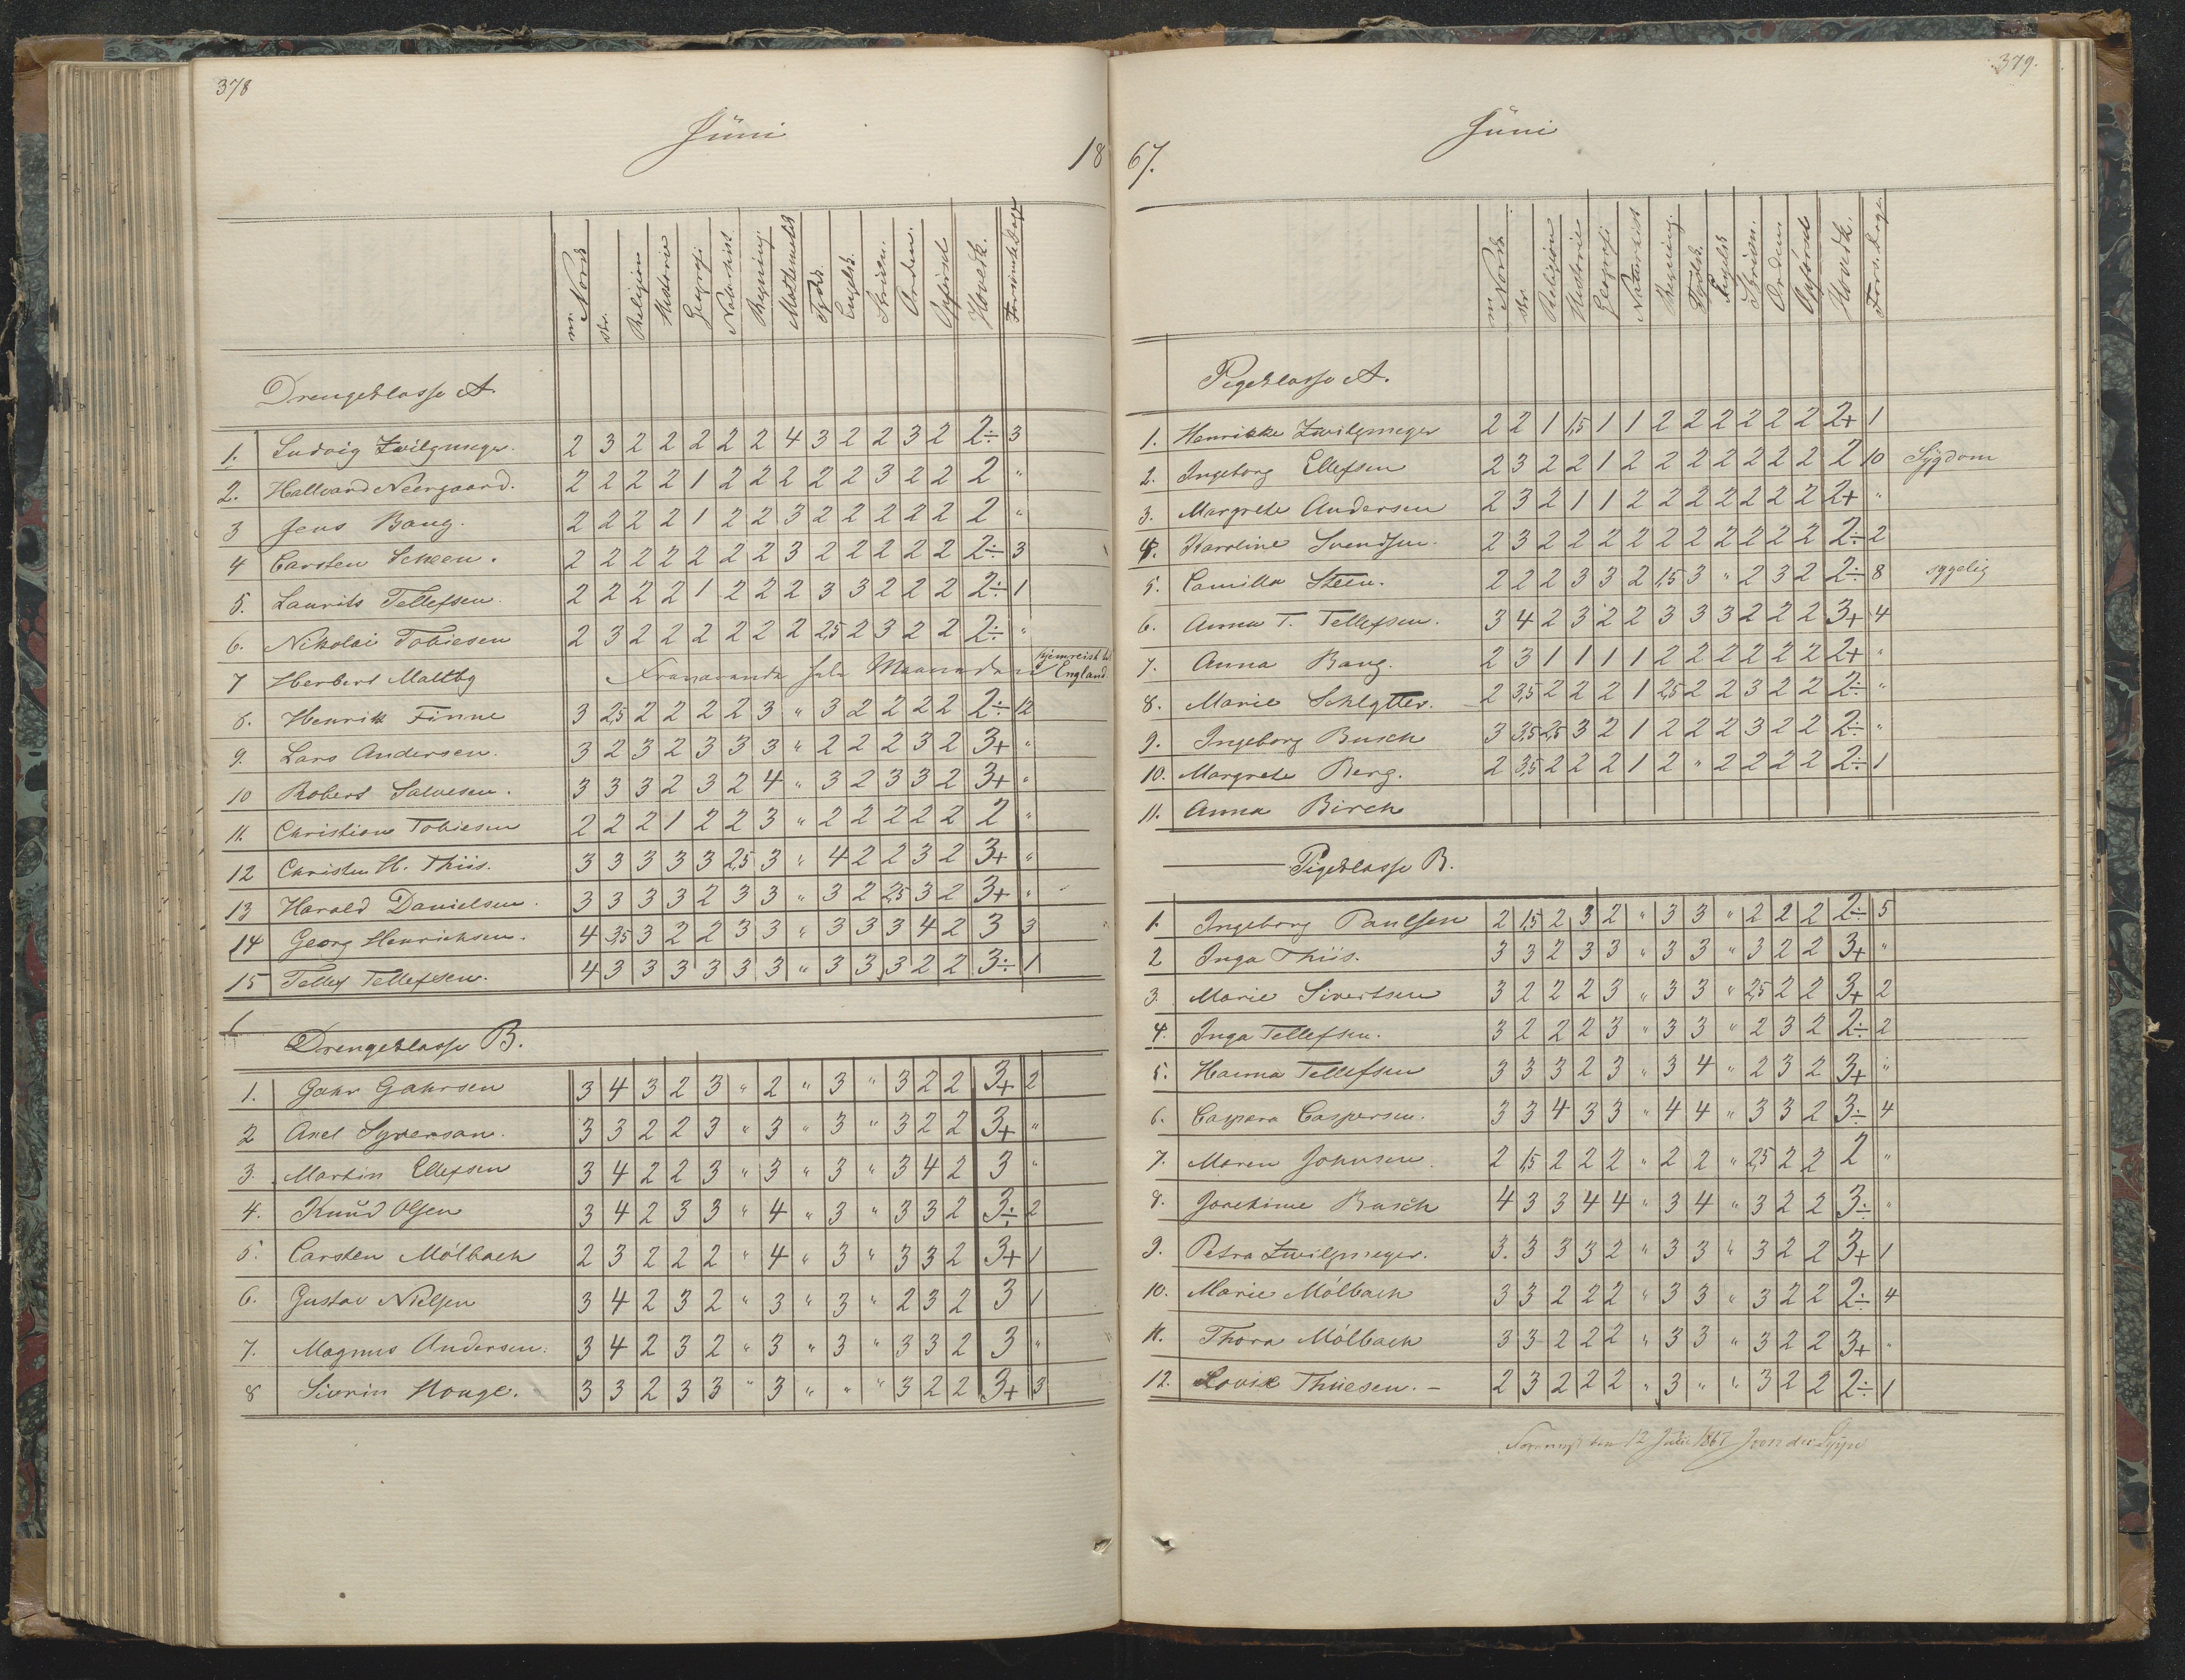 378
Jüni
18
m. Norsk
skr.
Religion
Historie
Geografi
Naturhist.
Regning.
Mathematik
Tydsk.
Engelsk.
Skrivn.
Orden.
Opförsel
Hovedk.
Forsömte Dage
Drengeklasse A.
1. Ludvig Zwilgmeyer. 2 3 2 2 2 2 2 4 3 2 2 3 2 2÷ 3
2. Hallvard Neergaard. 2 2 2 2 1 2 2 2 2 2 3 2 2 2 "
3 Jens Bang. 2 2 2 2 1 2 2 3 2 2 2 2 2 2 "
4 Carsten Scheen. 2 2 2 2 2 2 2 3 2 2 2 2 2 2÷ 3
5. Laurits Tellefsen. 2 2 2 2 1 2 2 2 3 3 2 2 2 2÷ 1
6. Nikolai Tobiesen 2 3 2 2 2 2 2 2 2,5 2 3 2 2 2÷ "
7 Herbert Maltby Fraværende hele Maaneden hjemreist til England.
8. Henrik Finne 3 2,5 2 2 2 2 3 " 3 2 2 2 2 2÷ 12
9. Lars Andersen. 3 2 3 2 3 3 3 " 2 2 2 3 2 3+ "
10 Robert Salvesen. 3 3 3 2 3 2 4 " 3 2 3 3 2 3+ "
11. Christian Tobiesen 2 2 2 1 2 2 3 " 2 2 2 2 2 2 "
12 Christen H. Thiis. 3 3 3 3 3 2,5 3 " 4 2 2 3 2 3+ "
13 Harald Danielsen. 3 3 3 3 2 3 3 " 3 2 2,5 3 2 3+ "
14 Georg Henrichsen. 4 3,5 3 2 2 3 3 " 3 3 3 4 2 3 3
15 Tellef Tellefsen. 4 3 3 3 3 3 3 " 3 3 3 2 2 3÷ 1
Drengeklasse B.
1. Gahr Gahrsen 3 4 3 2 3 " 2 " 3 " 3 2 2 3+ 2
2 Axel Syversan. 3 3 2 2 3 " 3 " 3 " 3 2 2 3+ "
3. Martin Ellefsen 3 4 2 2 3 " 3 " 3 " 3 4 2 3 "
4. Knud Olsen 3 4 2 3 3 " 4 " 3 " 3 3 2 3÷ 2
5. Carsten Mölbach 2 3 2 2 2 " 4 " 3 " 3 3 2 3+ 1
6. Gustav Nielsen 3 4 2 3 2 " 3 " 3 " 2 3 2 3 1
7. Magnus Andersen. 3 4 2 3 2 " 3 " 3 " 3 3 2 3 "
8 Sivrin Houge. 3 3 2 3 3 " 3 " " " 3 2 2 3+ 3
379.
Jüni
67.
m. Norsk.
skr.
Religion
Historie
Geografi
Naturhist
Regning.
Tydsk.
Engelsk
Skrivn.
Orden.
Opförsel
Hovedk.
Fors. Dage.
Pigeklasse A.
1. Henrikke Zwilgmeyer 2 2 1 1,5 1 1 2 2 2 2 2 2 2+ 1
2. Ingeborg Ellefsen 2 3 2 2 1 2 2 2 2 2 2 2 2 10 Sygdom
3. Margrete Andersen 2 3 2 1 1 2 2 2 2 2 2 2 2+ "
4. Karoline Svendsen. 2 3 2 2 2 2 2 2 2 2 2 2 2÷ 2
5. Camilla Steen. 2 2 2 3 3 2 1,5 3 " 2 3 2 2÷ 8 sygelig
6. Anna T. Tellefsen. 3 4 2 3 2 2 3 3 3 2 2 2 3+ 4
7. Anna Bang. 2 3 1 1 1 1 2 2 2 2 2 2 2+ "
8. Marie Schlytter. 2 3,5 2 2 2 1 2,5 2 2 3 2 2 2÷ "
9. Ingeborg Busch 3 3,5 2,5 3 2 1 2 2 2 3 2 2 2÷ "
10. Margrete Berg. 2 3,5 2 2 2 1 2 " 2 2 2 2 2÷ 1
11. Anna Birch
Pigeklasse B.
1. Ingeborg Paulsen 2 1,5 2 3 2 " 3 3 " 2 2 2 2÷ 5
2 Inga Thiis. 3 3 2 3 3 " 3 3 " 3 2 2 3+ "
3. Marie Sivertsen 3 2 2 2 3 " 3 3 " 2,5 2 2 3+ 2
4. Inga Tellefsen. 3 2 2 2 3 " 3 3 " 2 3 2 2÷ 2
5. Hanna Tellefsen 3 3 3 2 3 " 3 4 " 2 3 2 3+ "
6. Caspara Caspersen. 3 3 4 3 3 " 4 4 " 3 3 2 3÷ 4
7. Maren Johnsen. 2 1,5 2 2 2 " 2 2 " 2,5 2 2 2 "
8. Jorekime Busch 4 3 3 4 4 " 3 4 " 3 2 2 3÷ "
9. Petra Zwilgmeyer. 3. 3 3 3 2 " 3 3 " 3 2 2 3+ 1
10. Marie Mölbach 3 3 2 2 2 " 3 3 " 3 2 2 2÷ 4
11. Thora Mölbach 3 3 2 2 2 " 3 3 " 3 2 2 3+ "
12. Lovise Thiesen. – 2 3 2 2 2 " 3 " " 3 2 2 2÷ 1
den 12 Juli 1867